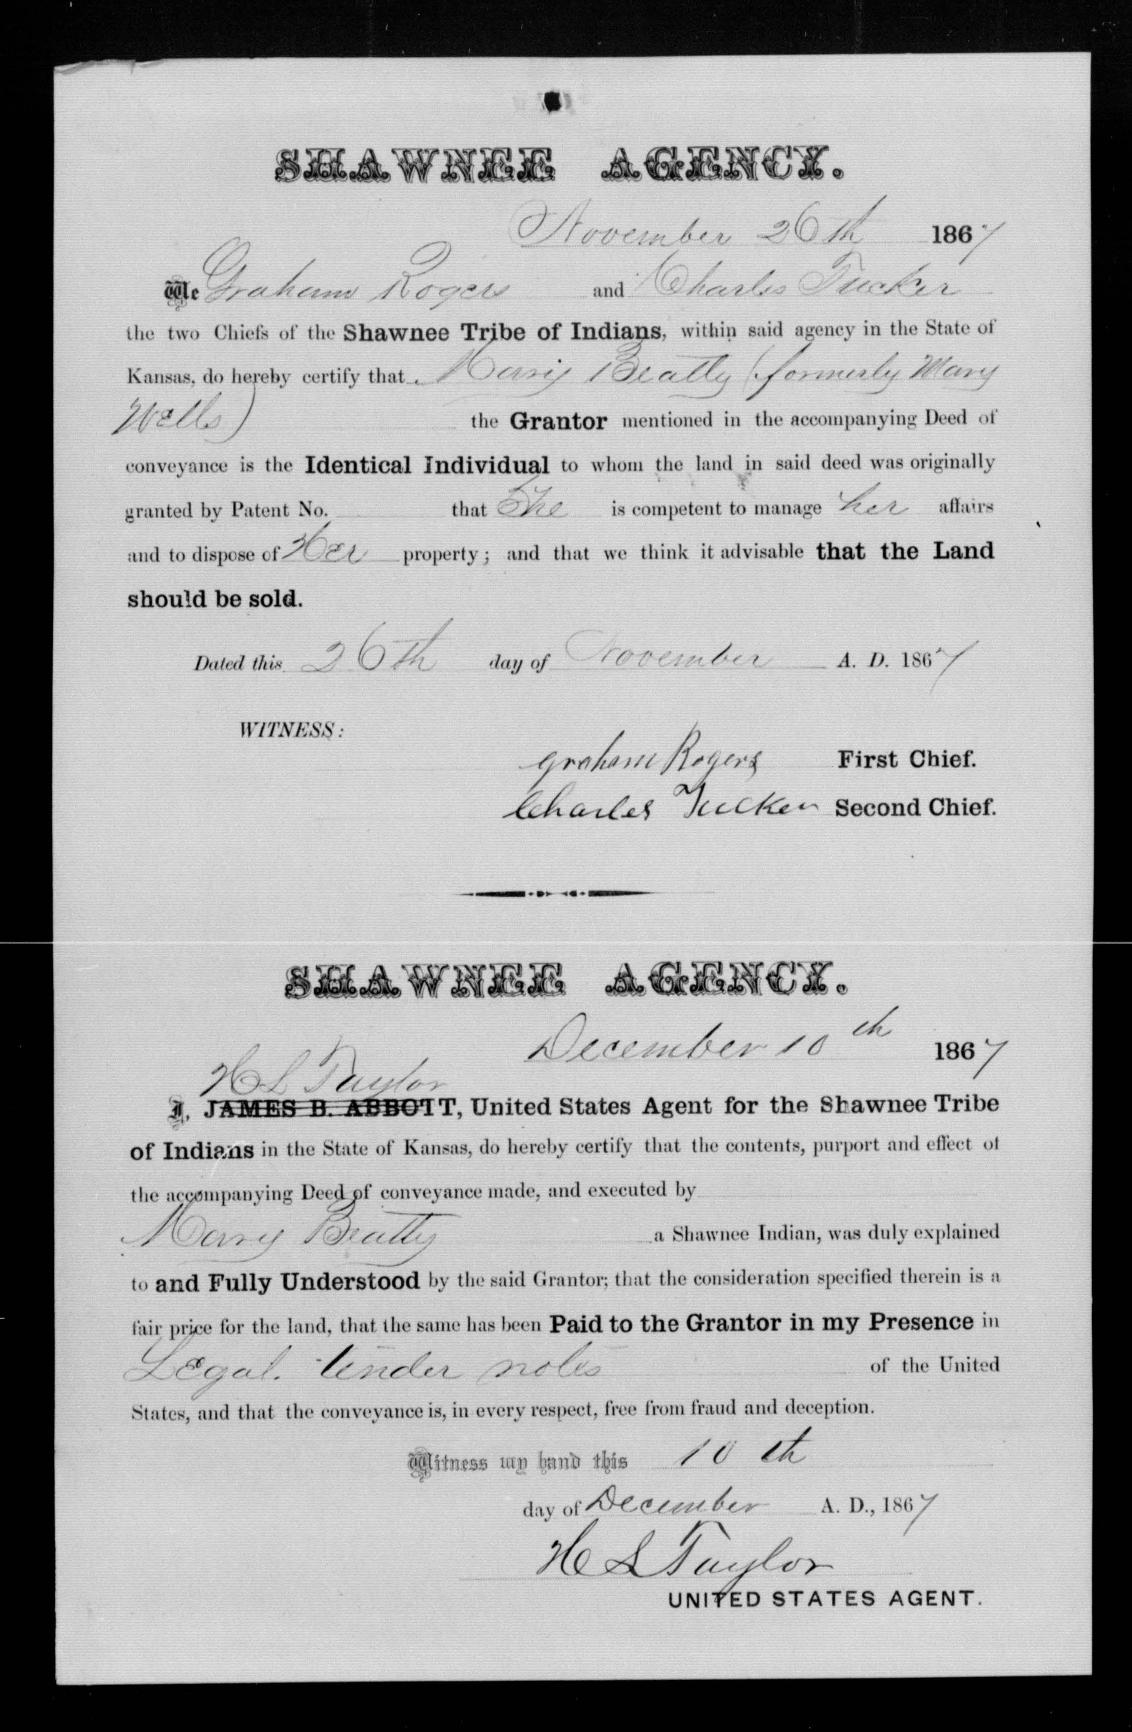 SHAWNEE AGENCY.
November 26th 1867
We Graham Rogers and Charles Tucker
the two Chiefs of the Shawnee Tribe of Indians, within said agency in the State of
Kansas, do hereby certify that Mary Beatty (formerly Mary
Wells) the Grantor mentioned in the accompanying Deed of
conveyance is the Identical Individual to whom the land in said deed was originally
granted by Patent No. that She is competent to manage her affairs
and to dispose of Her property; and that we think it advisable that the Land
should be sold.
Dated this 26th day of November A. D. 1867
WITNESS:
Graham Rogers First Chief.
Charles Tucker Second Chief.
SHAWNEE AGENCY.
December 10th 1867
H L Taylor
I, JAMES B. ABBOTT, United States Agent for the Shawnee Tribe
of Indians in the State of Kansas, do hereby certify that the contents, purport and effect of
the accompanying Deed of conveyance made, and executed by
Mary Beatty a Shawnee Indian, was duly explained
to and Fully Understood by the said Grantor; that the consideration specified therein is a
fair price for the land, that the same has been Paid to the Grantor in my Presence in
Legal tender notes of the United
States, and that the conveyance is, in every respect, free from fraud and deception.
Witness my hand this 10th
day of December A. D., 1867
H L Taylor
UNITED STATES AGENT.